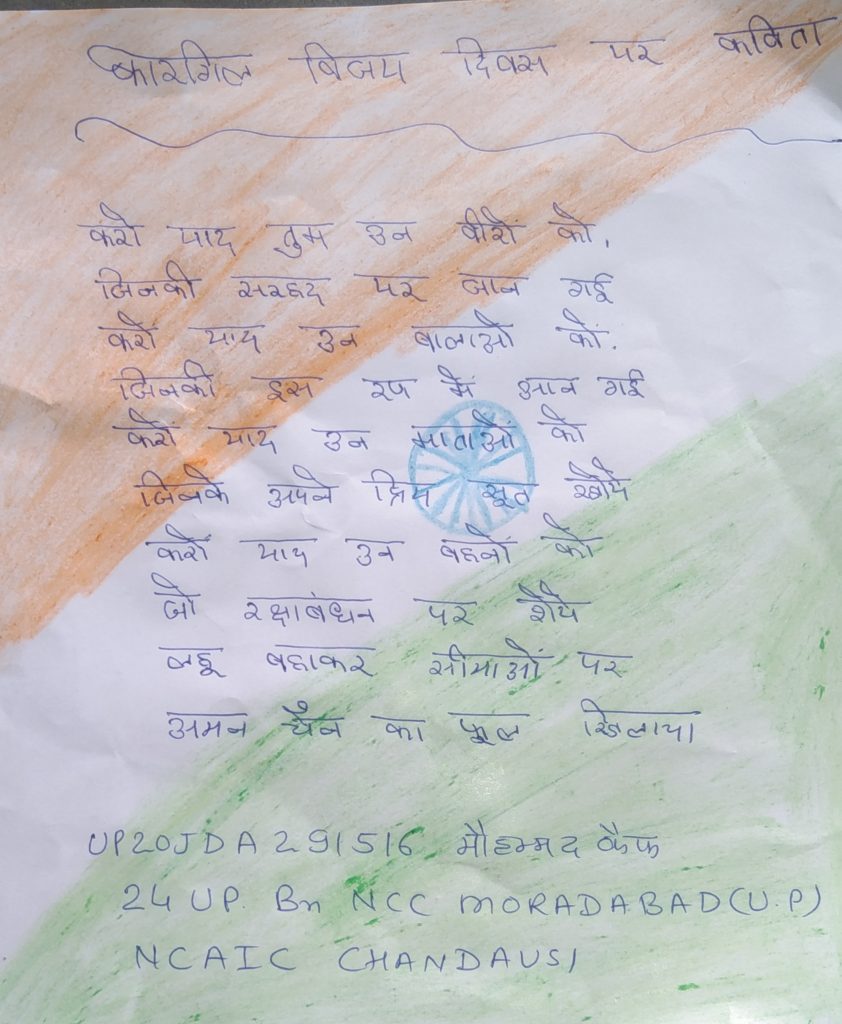 कारगिल विजय दिवस पर कविता
करो याद तुम उन वीरों को,
जिनकी सरहद पर जान गई
करो याद उन बालाओ को.
जिनकी इस रण में आन गई
करो याद उन माताओं को
जिनके अपने प्रिय सूत खोये
करो याद उन बहनों को
जो रक्षाबंधन पर रोये
लहू बहाकर सीमाओं पर
अमन चैन का फूल खिलाया
UP20JDA291516 मौहम्मद कैफ
24 UP. Bn NCC MORADABAD(U.P)
NCAIC CHANDAUSI